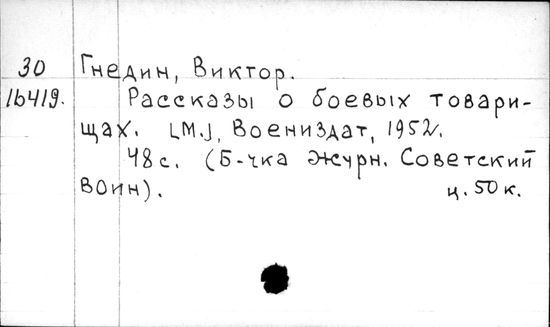 30 Гнедин, Виктор.
16419. Рассказы о боевых товари-
щах. [М.], Воениздат, 1952.
48 с. (Б-чка журн. Советский
воин). ц. 50 к.